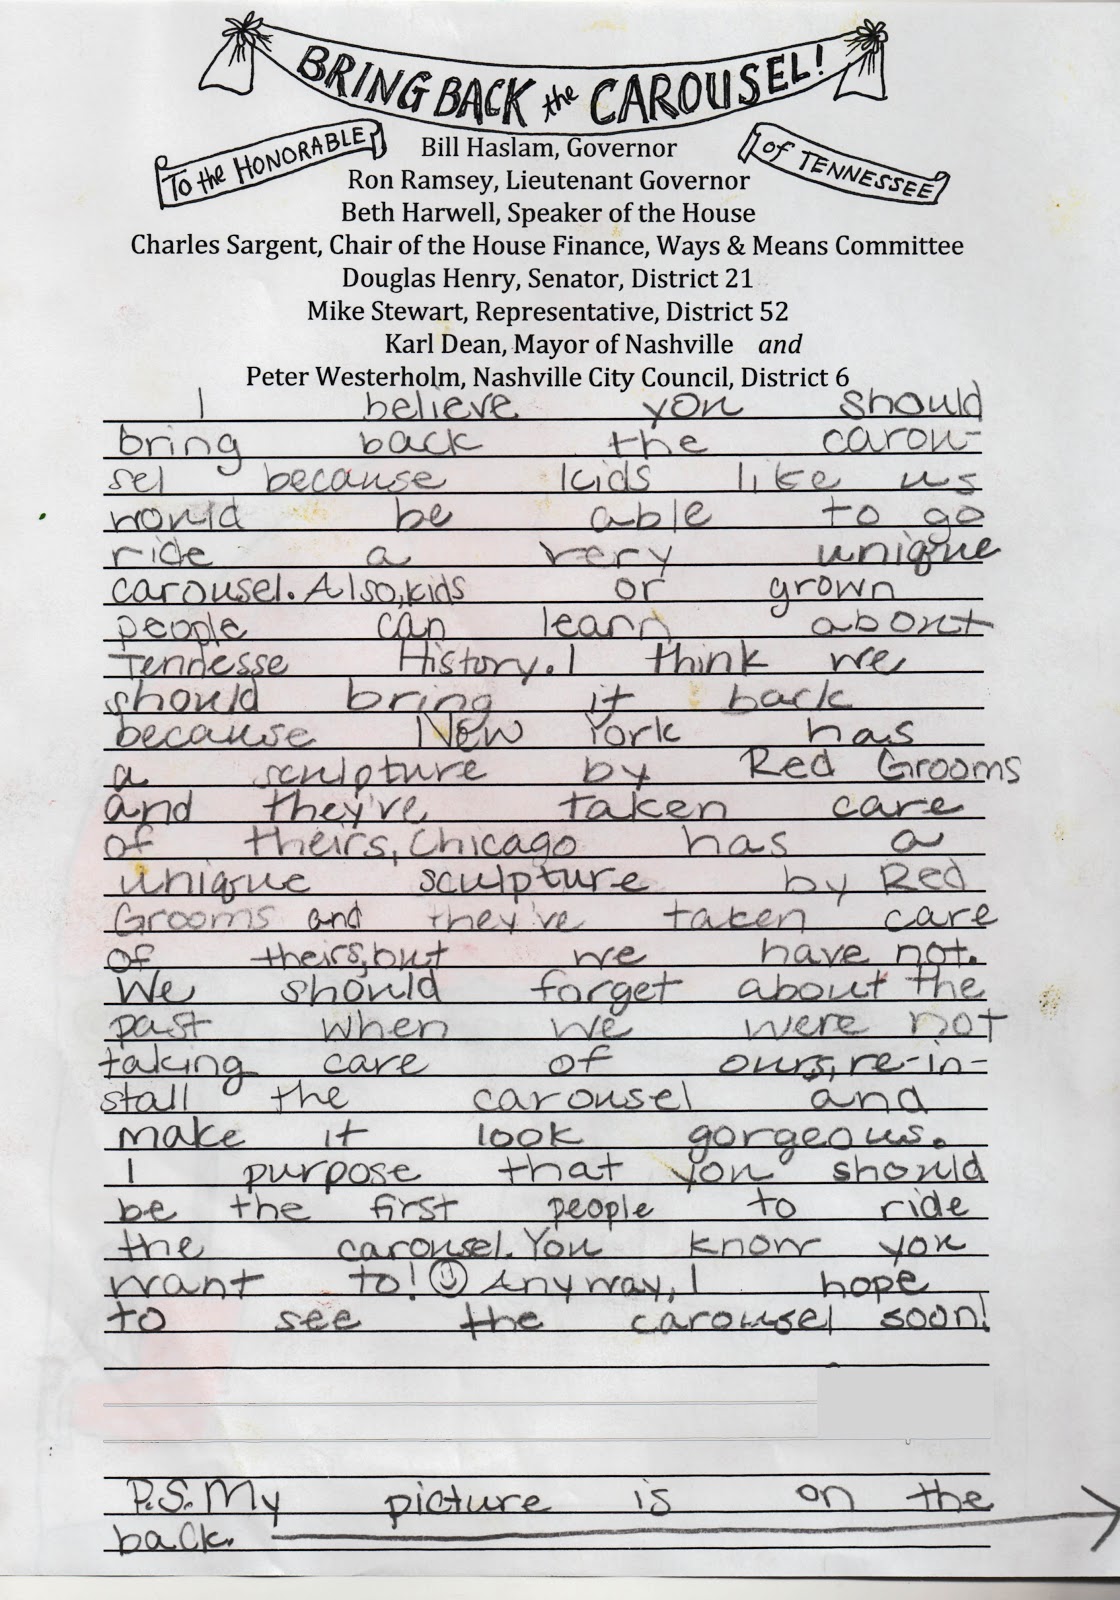 BRING BACK the CAROUSEL!
To the HONORABLE
of TENNESSEE
Bill Haslam, Governor
Ron Ramsey, Lieutenant Governor
Beth Harwell, Speaker of the House
Charles Sargent, Chair of the House Finance, Ways & Means Committee
Douglas Henry, Senator, District 21
Mike Stewart, Representative, District 52
Karl Dean, Mayor of Nashville and
Peter Westerholm, Nashville City Council, District 6
I believe you should
bring back the carou-
sel because kids like us
would be able to go
ride a very unique
carousel. Also, kids or grown
people can learn about
Tennesse History. I think we
should bring it back
because New York has
a sculpture by Red Grooms
and they've taken care
of theirs, Chicago has a
unique sculpture by Red
Grooms and they've taken care
of theirs, but we have not.
We should forget about the
past when we were not
taking care of ours, re-in-
stall the carousel and
make it look gorgeous.
I purpose that you should
be the first people to ride
the carousel. You know you
want to! ☺ Anyway, I hope
to see the carousel soon!
P.S. My picture is on the
back.